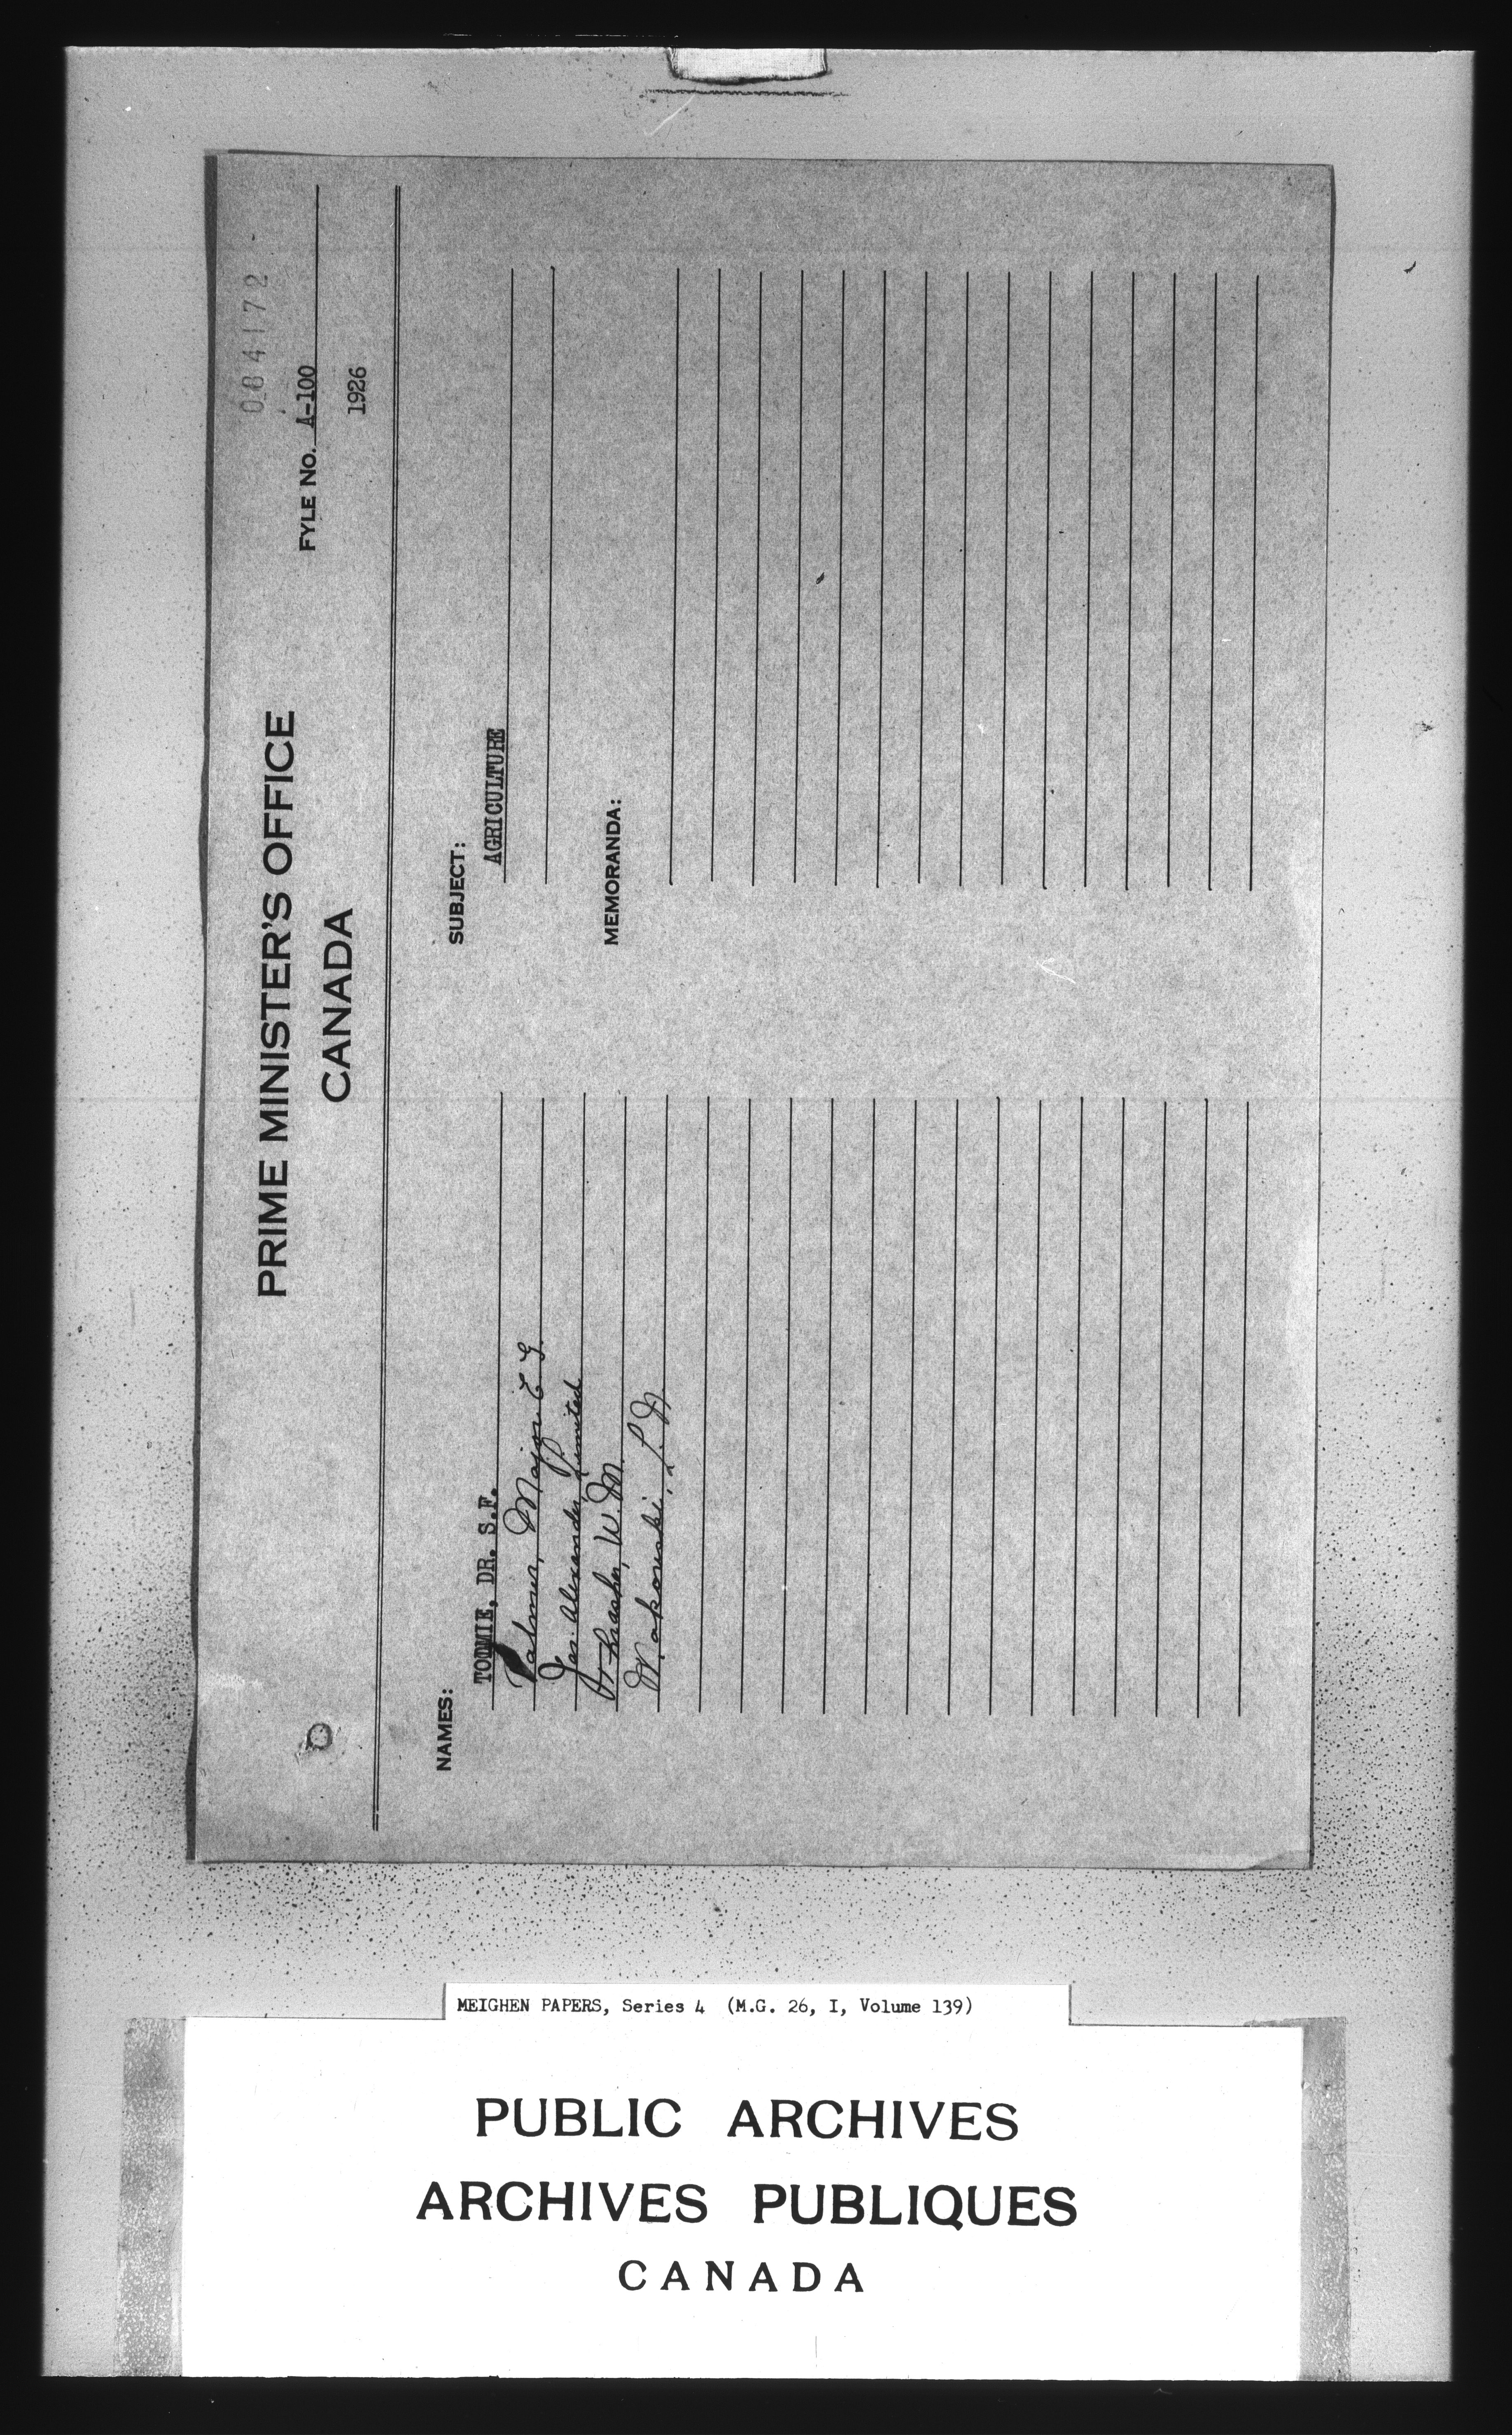 084172
PRIME MINISTER'S OFFICE
CANADA
FYLE NO. A-100
1926
NAMES:
TOLMIE, DR. S.F.
Palmer, Major E G.
Jas. Alexander, Limited
Thrasher, W. M.
Makowski, L. N.
SUBJECT:
AGRICULTURE
MEMORANDA:
MEIGHEN PAPERS, Series 4 (M.G. 26, I, Volume 139)
PUBLIC ARCHIVES
ARCHIVES PUBLIQUES
CANADA